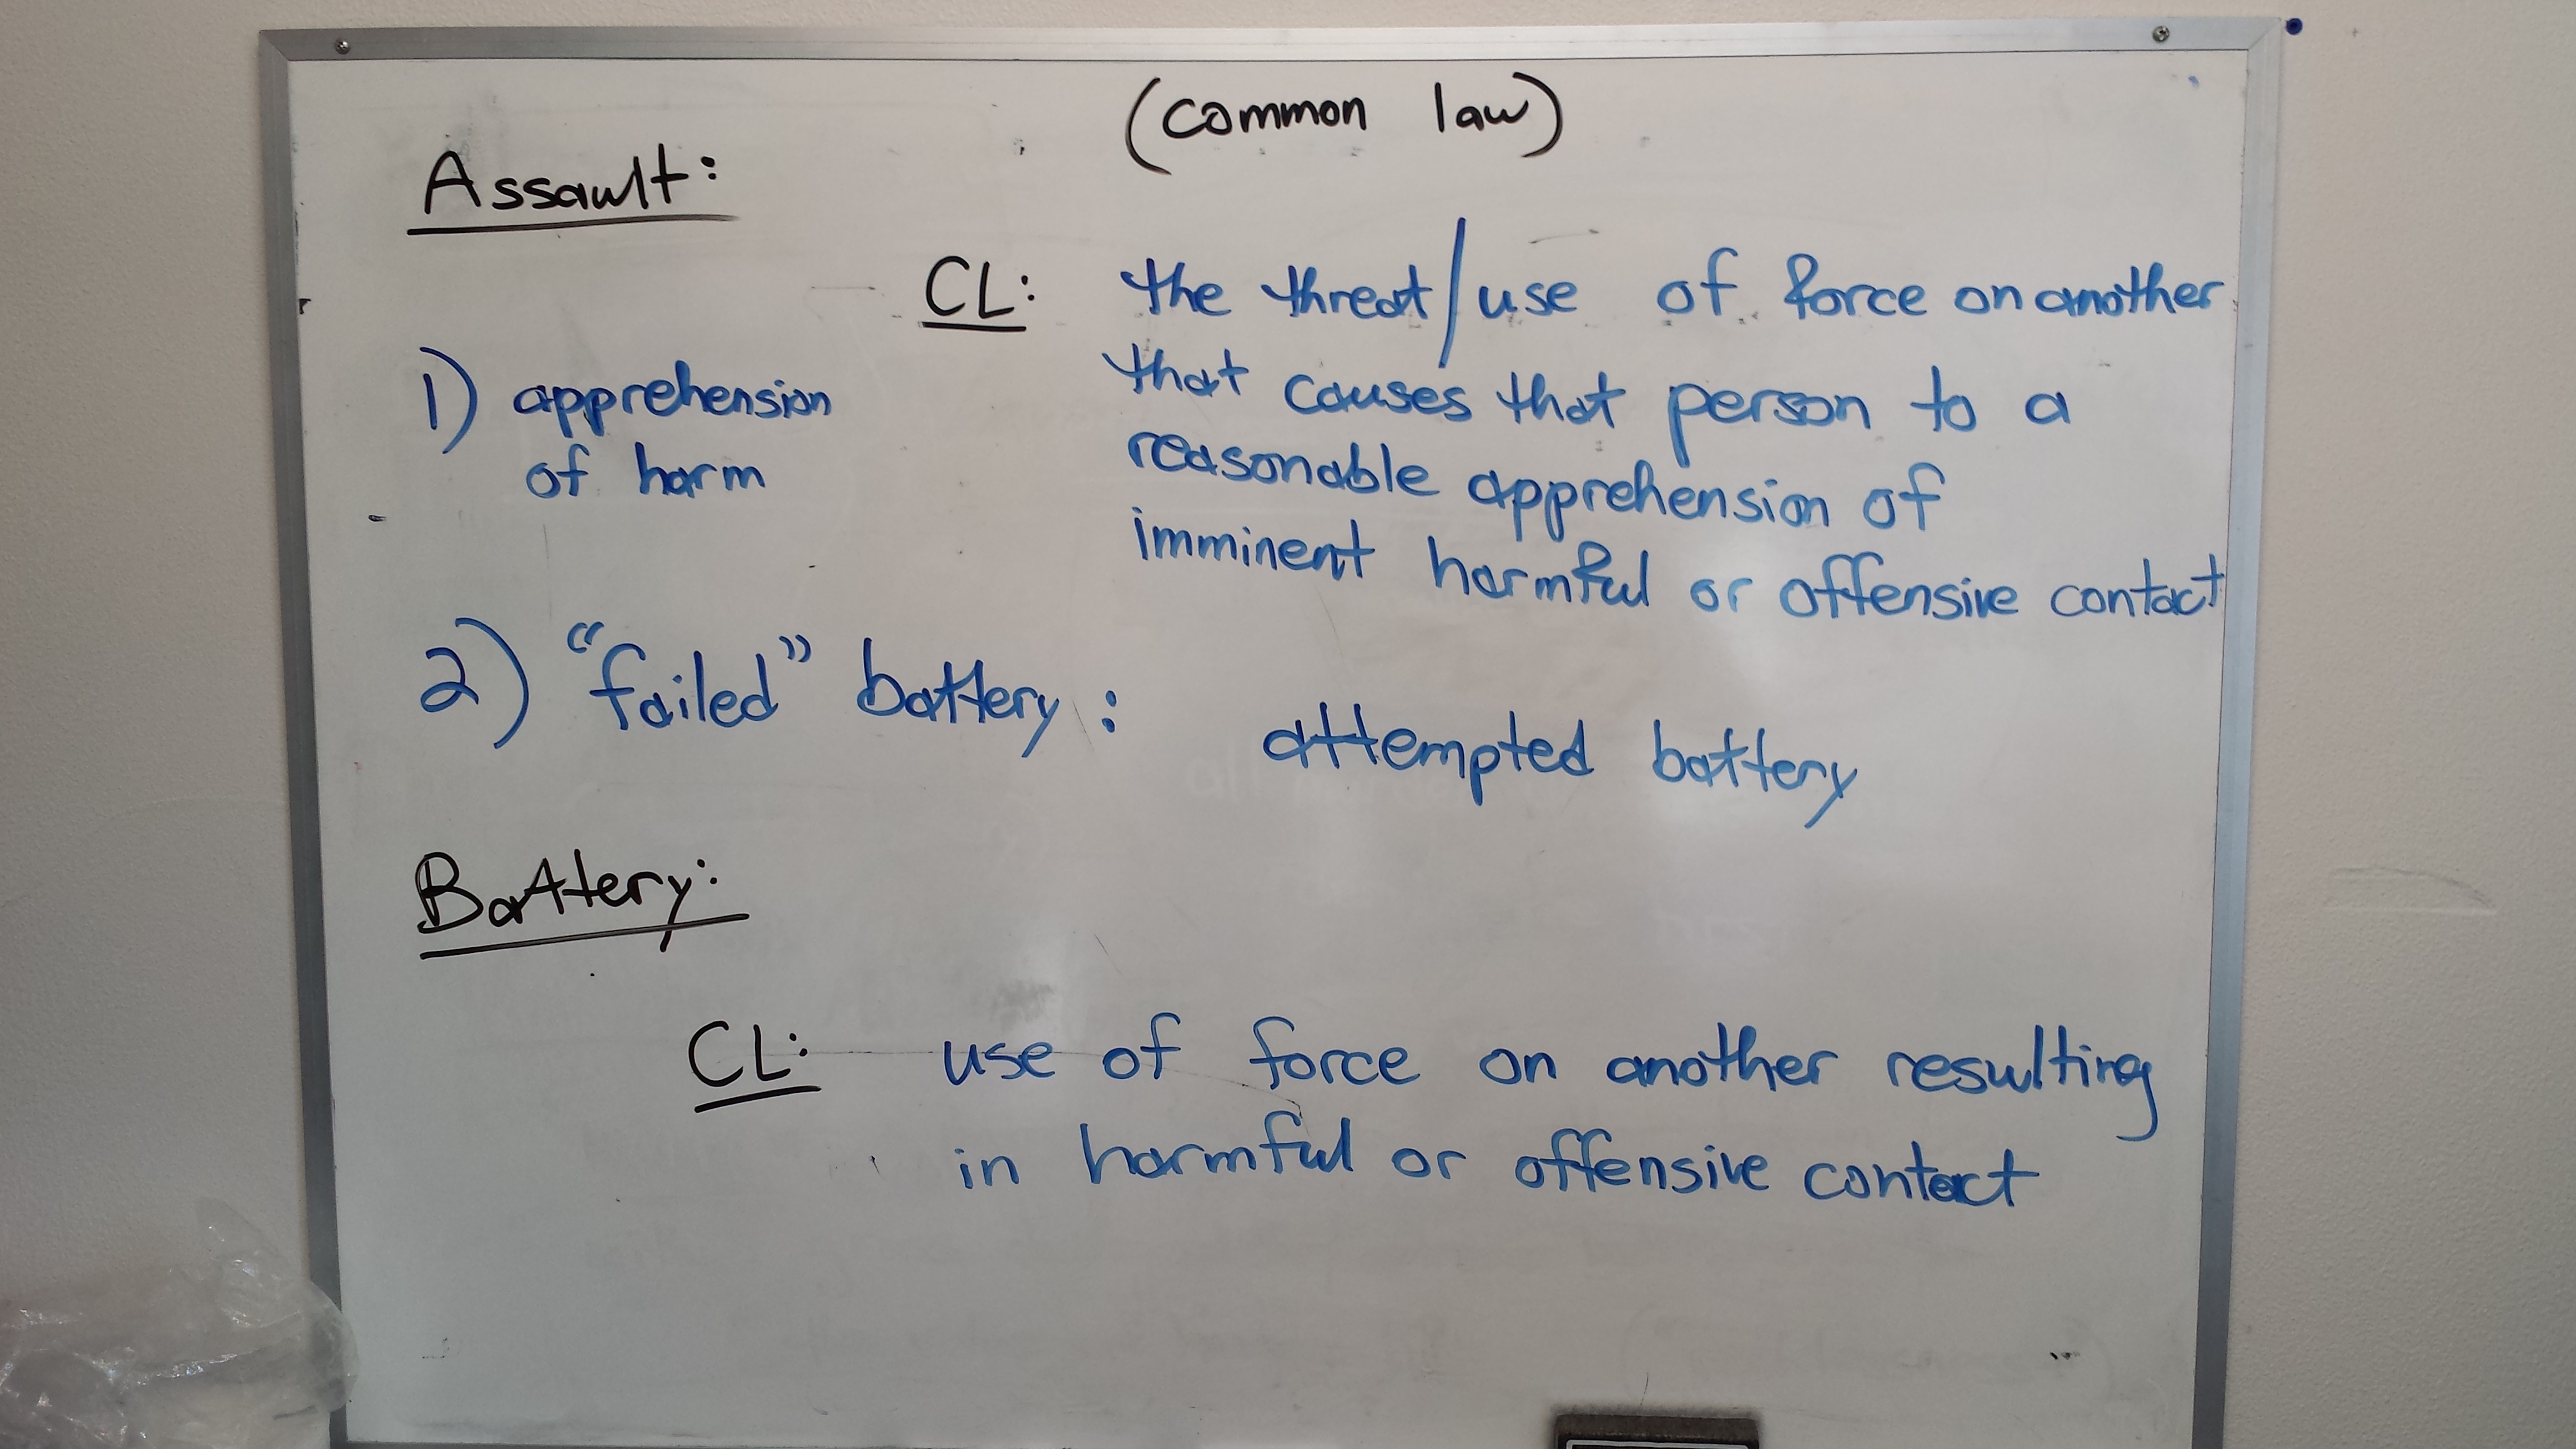 (common law)
Assault:
CL: the threat/use of force on another
that causes that person to a
reasonable apprehension of
imminent harmful or offensive contact
1) apprehension
of harm
2) "failed" battery: attempted battery
Battery:
CL: use of force on another resulting
in harmful or offensive contact